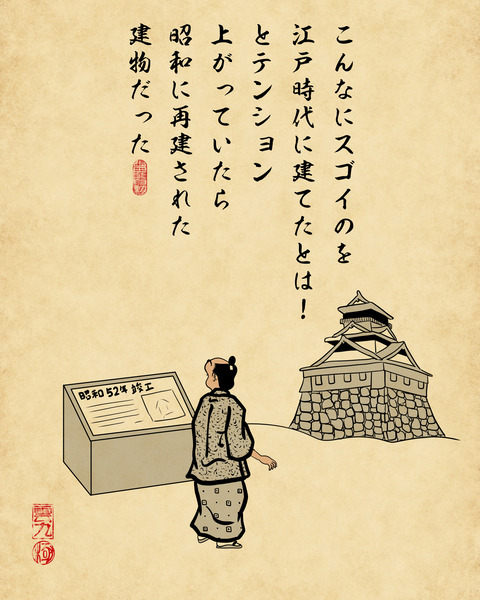 こんなにスゴイのを
江戸時代に建てたとは!
とテンション
上がっていたら
昭和に再建された
建物だった
昭和52年 竣工